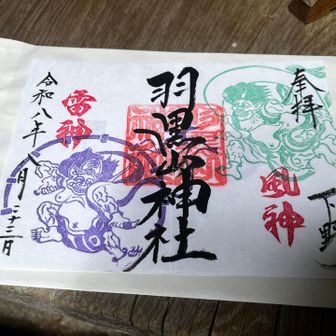 奉拝
下野
風神
羽黒山神社
雷神
令和八年八月二十三日